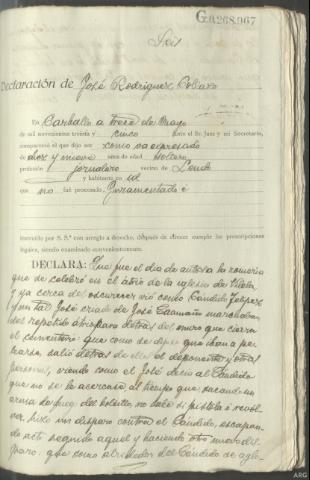 G.0.268.967
Seis
Declaración de José Rodríguez
En Carballo a trece de Mayo
de mil novecientos treinta y cinco ante el Sr. Juez y mi Secretario,
compareció el que dijo ser como va expresado
de diez y nueve años de edad soltero
profesión jornalero vecino de
y habitante en id
que no fué procesado, Juramentado é
instruído por S. S.ª con arreglo a derecho, después de ofrecer cumplir las prescripciones
legales, siendo examinado convenientemente.
DECLARA: Que fue el día de autos a la romería
que se celebró en el atrio de la iglesia de
y ya cerca del oscurecer vió como Cándido
y un tal José criado de José Caamaño marchaban
del repetido atrio para detrás del muro que cierra
el cementerio que como se dijo que iban a pe-
learse, salió detrás de ellos el deponente y otras
personas, viendo como el José decía al Cándido
que no se le acercase al tiempo que sacando un
arma de fuego del bolsillo, no sabe si pistola ó revól-
ver, hizo un disparo contra el Cándido, escapan-
do acto seguido aquel y haciendo otro nuevo dis-
paro: que como alrededor del Cándido se aglo-
ARG